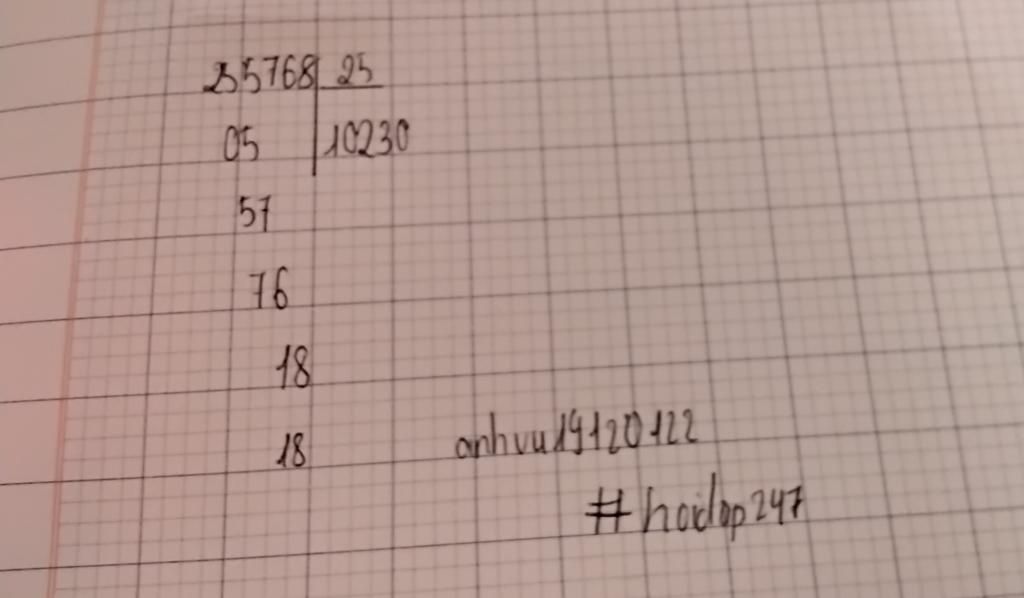 25768 25
05 10230
57
76
18
18 anhvu19120122
#hoidap247